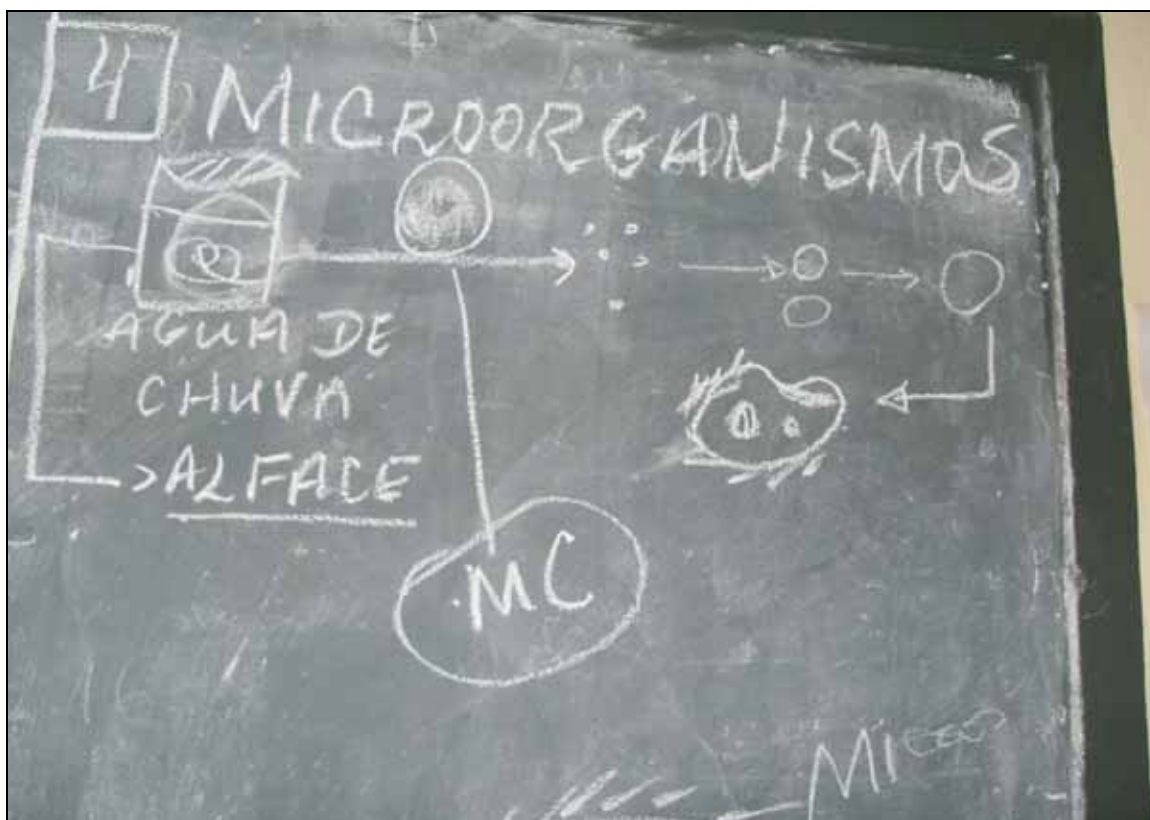 4 MICROORGANISMOS
AGUA DE
CHUVA
>ALFACE
MC